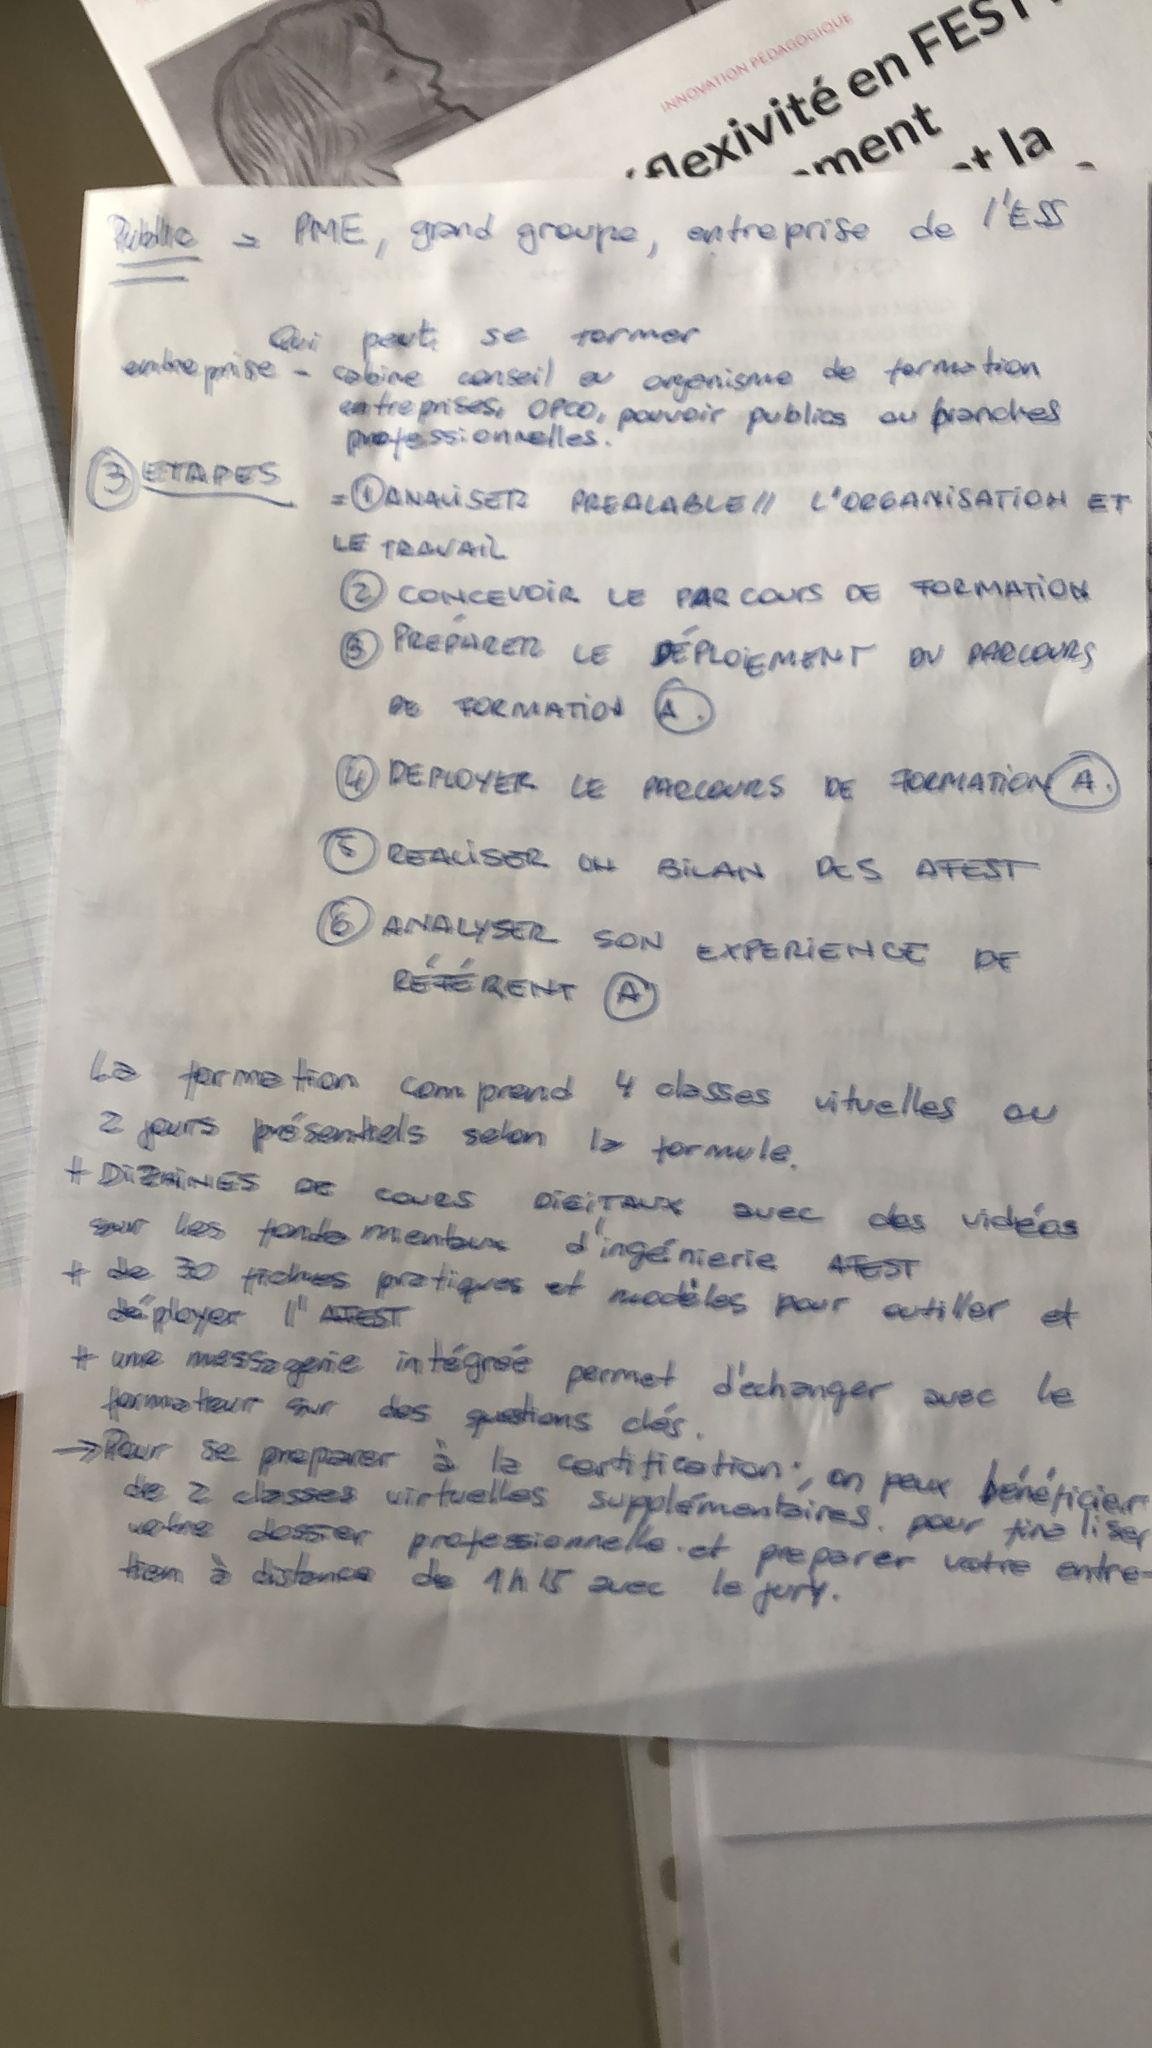 INNOVATION PÉDAGOGIQUE
flexivité en FEST
ement
et la
Public = PME, grand groupe, entreprise de l'ESS
Qui peut se former
entreprise - cabine conseil ou organisme de formation
entreprises, OPCO, pouvoir publics ou branches
professionnelles.
③ ETAPES = ① ANALISER PREALABLE // L'ORGANISATION ET
LE TRAVAIL
② CONCEVOIR LE PARCOURS DE FORMATION
③ PRÉPARER LE DÉPLOIEMENT DU PARCOURS
DE FORMATION A.
④ DEPLOYER LE PARCOURS DE FORMATION A.
⑤ REALISER UN BILAN DES AFEST
⑥ ANALYSER SON EXPERIENCE DE
RÉFÉRENT A
La formation comprend 4 classes vituelles ou
2 jours présentiels selon la formule.
+ DIZAINES DE COURS DIGITAUX avec des vidéos
sur les fondamentaux d'ingénierie AFEST
+ de 30 fiches pratiques et modèles pour outiller et
déployer l'AFEST
+ une messagerie intégrée permet d'échanger avec le
formateur sur des questions clés.
→ Pour se preparer à la certification, on peux bénéficier
de 2 classes virtuelles supplémentaires. pour finaliser
votre dossier professionnelle. et preparer votre entre-
tien à distance de 1h15 avec le jury.